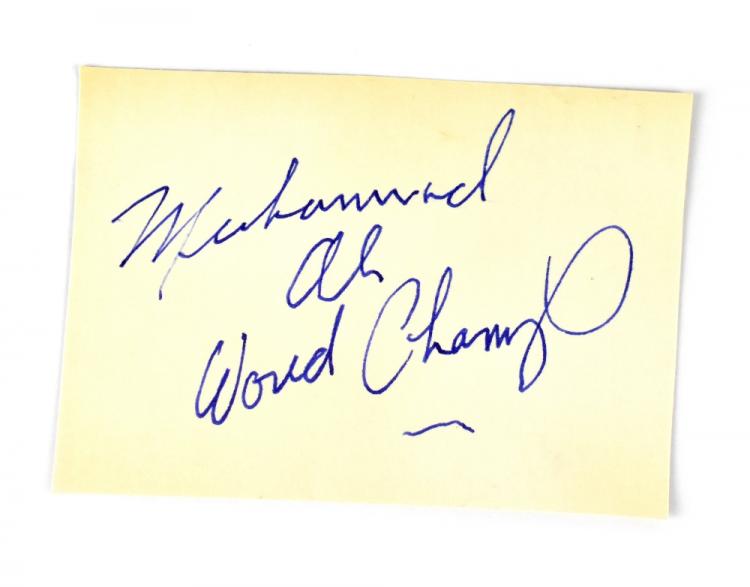 Muhammad
Ali
World Champ